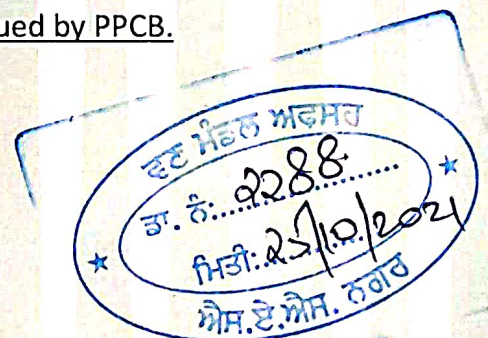 ued by PPCB.
ਵਣ ਮੰਡਲ ਅਫਸਰ
ਡਾ. ਨੰ: 2288
ਮਿਤੀ: 25/10/2021
ਐਸ.ਏ.ਐਸ. ਨਗਰ